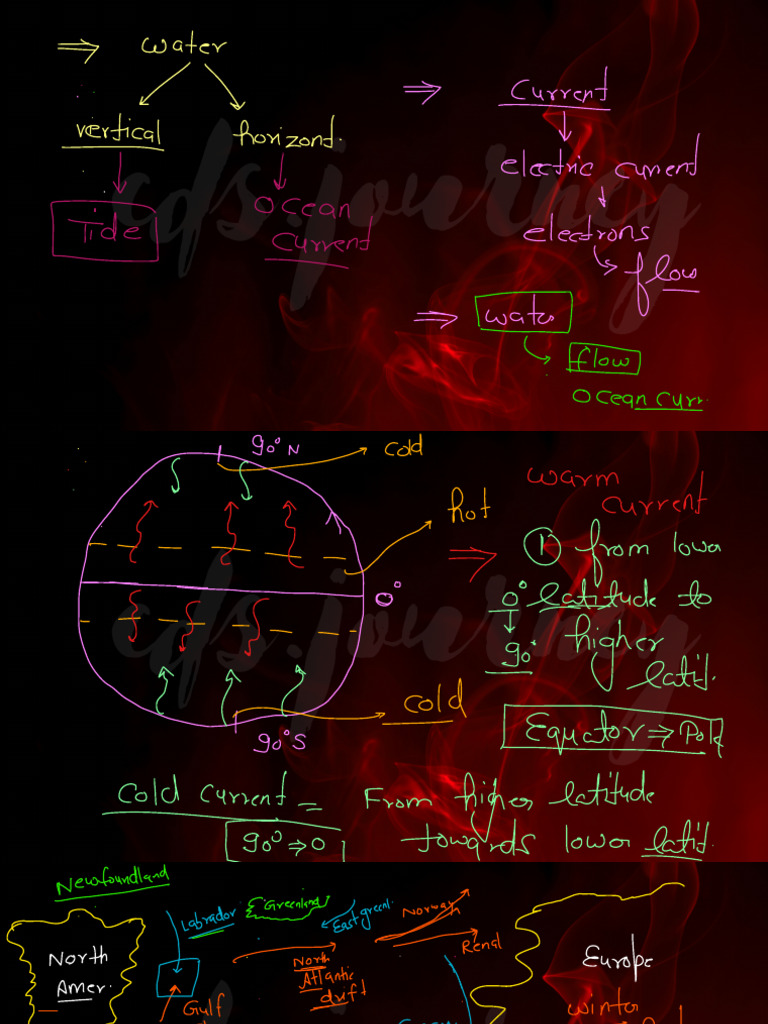 ⇒ water
vertical horizont.
Tide
Ocean
current
⇒ Current
electric current
electrons
flow
⇒ water
flow
Ocean curr.
cds.journey
90° N
cold
hot
0°
cold
90° S
warm
current
⇒ ① from lower
0° latitude to
90° higher
latit.
Equator ⇒ Pole
Cold current = From higher latitude
90° ⇒ 0 towards lower latit.
cds.journey
Newfoundland
North
Amer.
Labrador
Greenland
East green.
Norway
North
Atlantic
drift
Gulf
Europe
winter